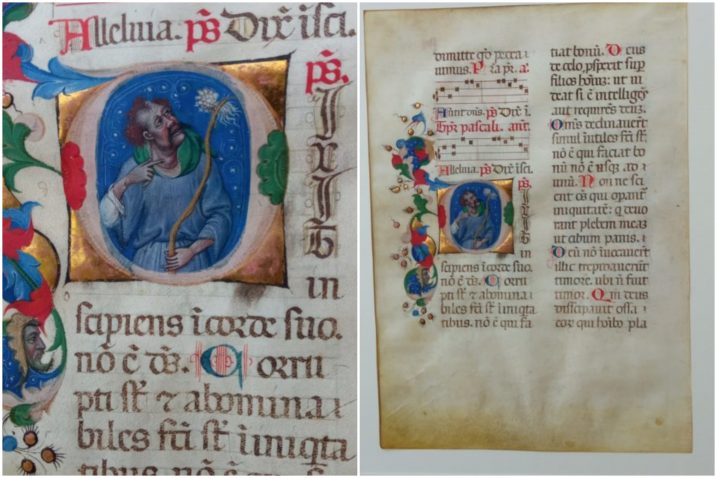 Alleluia. p̄s Dix̄ īsci.
p̄s.
I
X
I
T
in
sipiens ī corde suo.
nō ē d̄s. Corru
pti st̄ ⁊ abomina
biles fcī st̄ ī iniqta
tibus. nō ē qui fa
dimitte
nimus.
pascali. ant.
Alleluia. p̄s Dix̄ īsci.
I
X
I
T
in
sipiens ī corde suo.
nō ē d̄s. Corru
pti st̄ ⁊ abomina
biles fcī st̄ ī iniqta
tibus. nō ē qui fa
tiat bonū. Deus
de celo sup
filios hoīuz: ut ui
deat si ē intelligēs
aut requirēs deuz.
Om̄s declinauerūt
simul inutiles fcī st̄
nō ē qui faciat bo
nū nō ē usqꝫ ad
unū. Nonne sci
ent om̄s qui opant̄
iniquitatē: q̄ deuo
rant plebem meaz
ut cibum panis.
Deū nō inuocauerūt
illic trepidauerūt
timore. ubi nō fuit
timor. Qm̄ deus
dissipauit ossa
eoꝝ qui hoībꝰ pla